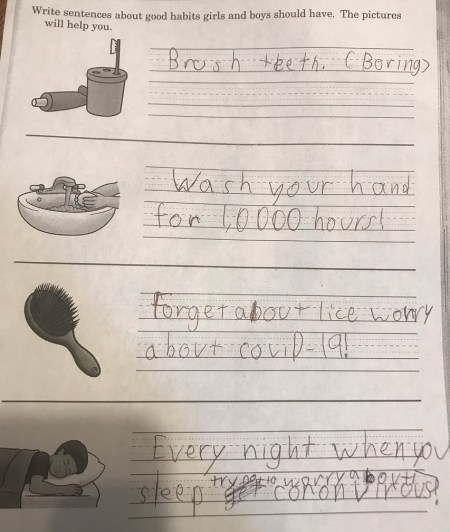 Write sentences about good habits girls and boys should have. The pictures
will help you.
Brush teeth. (Boring)
Wash your hand
for 1,0000 hours!
forget about lice worry
about covid-19!
Every night when you
sleep try not to worry about